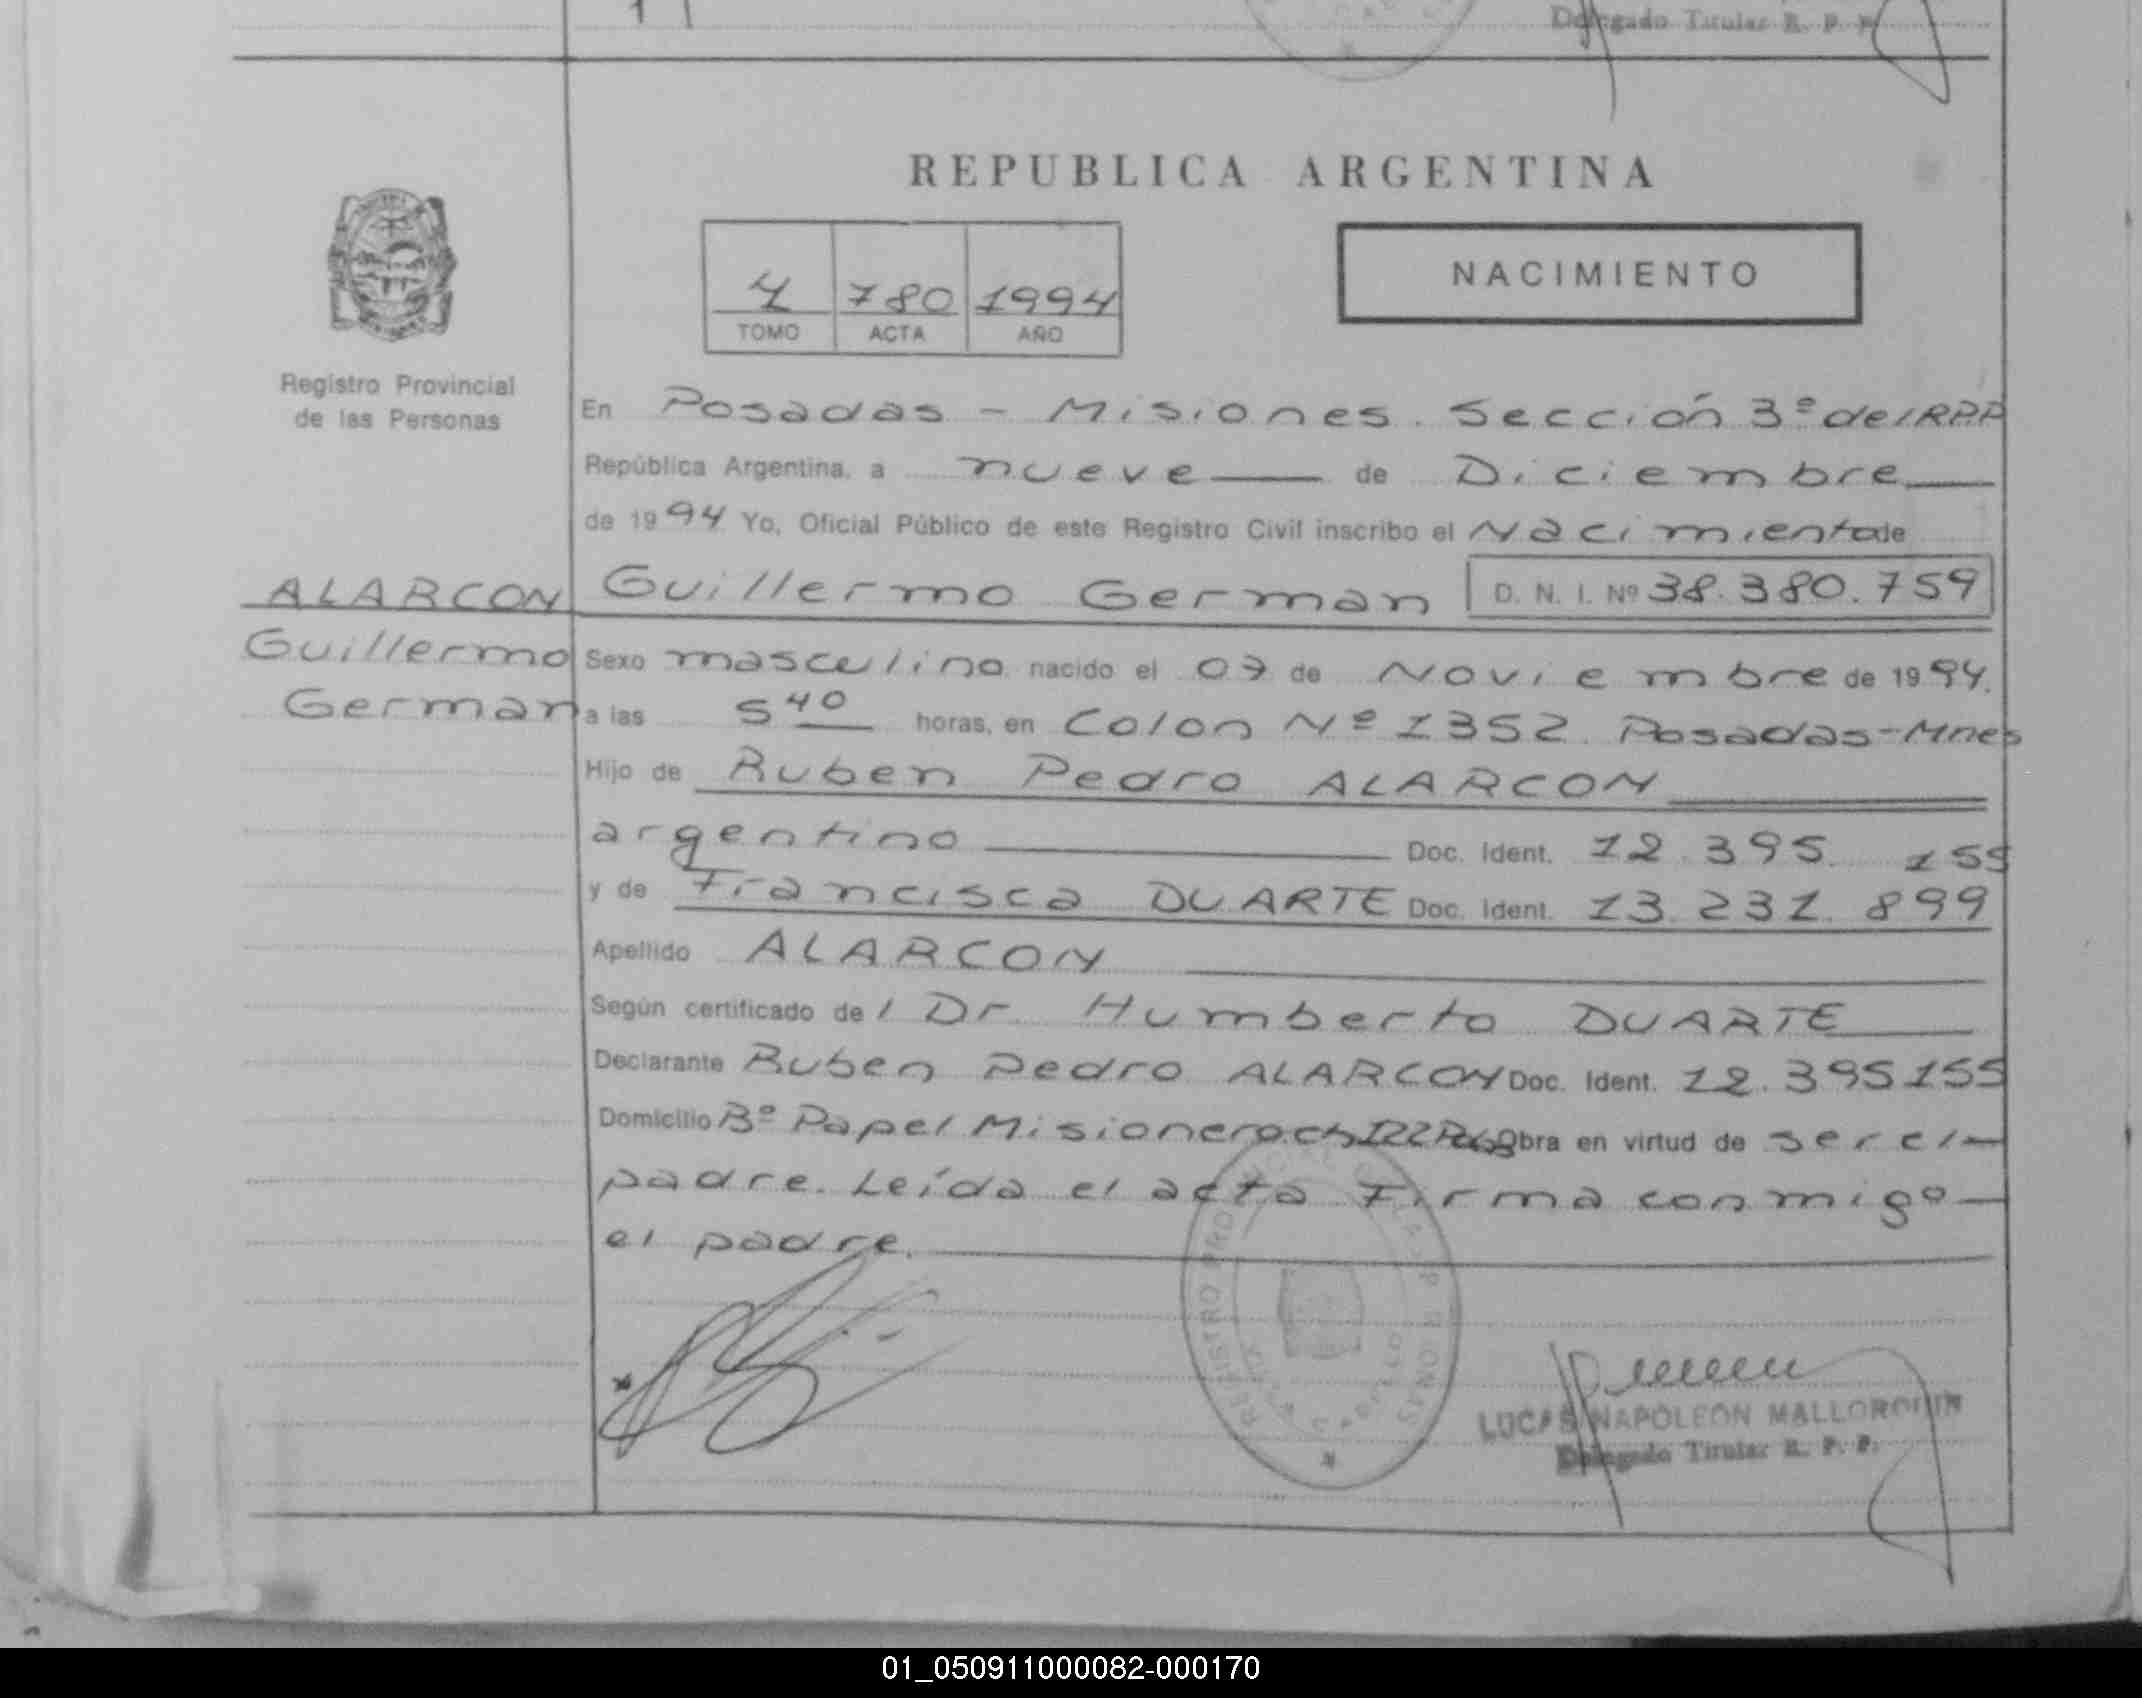 Delegado Titular R. P. P.
REPUBLICA ARGENTINA
NACIMIENTO
4 780 1994
TOMO ACTA AÑO
Registro Provincial
de las Personas
En Posadas - Misiones. Sección 3º del R.P.P
República Argentina, a nueve de Diciembre
de 1994 Yo, Oficial Público de este Registro Civil inscribo el Nacimiento de
ALARCON Guillermo German D. N. I. Nº 38.380.759
Guillermo Sexo masculino nacido el 07 de Noviembre de 1994.
German a las 5 40 horas, en Colon Nº 1352. Posadas-Mnes
Hijo de Ruben Pedro ALARCON
argentino Doc. Ident. 12.395.155
y de Francisca DUARTE Doc. Ident. 13.231.899
Apellido ALARCON
Según certificado del Dr. Humberto DUARTE
Declarante Ruben Pedro ALARCON Doc. Ident. 12.395155
Domicilio Bº Papel Misionero Obra en virtud de ser el
padre. Leída el acta Firma conmigo
el padre.
REGISTRO
LUCAS NAPOLEON MALLORQUIN
Delegado Titular R. P. P.
01_050911000082-000170